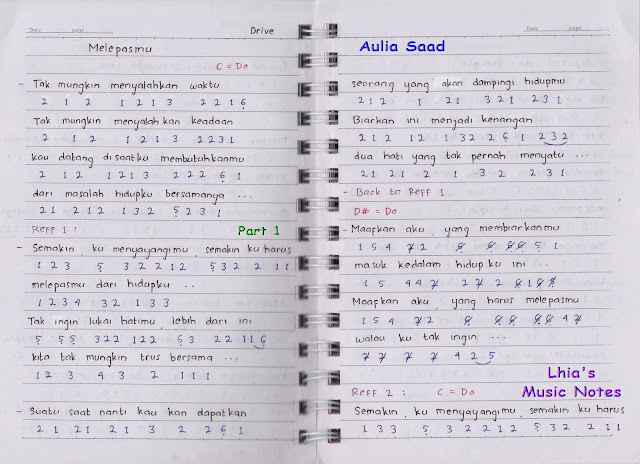 Date page
Drive
Melepasmu
C = Do
- Tak mungkin menyalahkan waktu
2 1 2 1 2 1 3 2 2 1 6
Tak mungkin menyalahkan keadaan
2 1 2 1 2 1 3 2231
kau datang disaatku membutuhkanmu
2 12 1213 222 6 1
dari masalah hidupku bersamanya ...
21 212 132 5231
Reff 1 :
Part 1
- Semakin ku menyayangimu semakin ku harus
1 2 3 5 3 2 2 12 532 2 11
melepasmu dari hidupku ..
1234 32 133
Tak ingin lukai hatimu lebih dari ini
5 55 322 122 63 22 116
kita tak mungkin trus bersama ...
12 3 4 3 2 111
- Suatu saat nanti kau kan dapatkan
21 21 21 3 2 261
Date page
Aulia Saad
seorang yang akan dampingi hidupmu
212 1 21 321 231
Biarkan ini menjadi kenangan
212 12 132 261 232
dua hati yang tak pernah menyatu ...
21 21 2 1 32 231
- Back to Reff 1.
D# = Do
- Maafkan aku, yang membiarkanmu
154 72 6 6 66 5 1
masuk kedalam hidup ku ini ...
15 447 27 2
Maafkan aku, yang harus melepasmu
154 72 6 6 66 47
walau ku tak ingin ...
7 7 7 7 4 2 5
Lhia's
Music Notes
Reff 2 : C = Do
Semakin ku menyayangimu semakin ku harus
133 5 32212 532 211